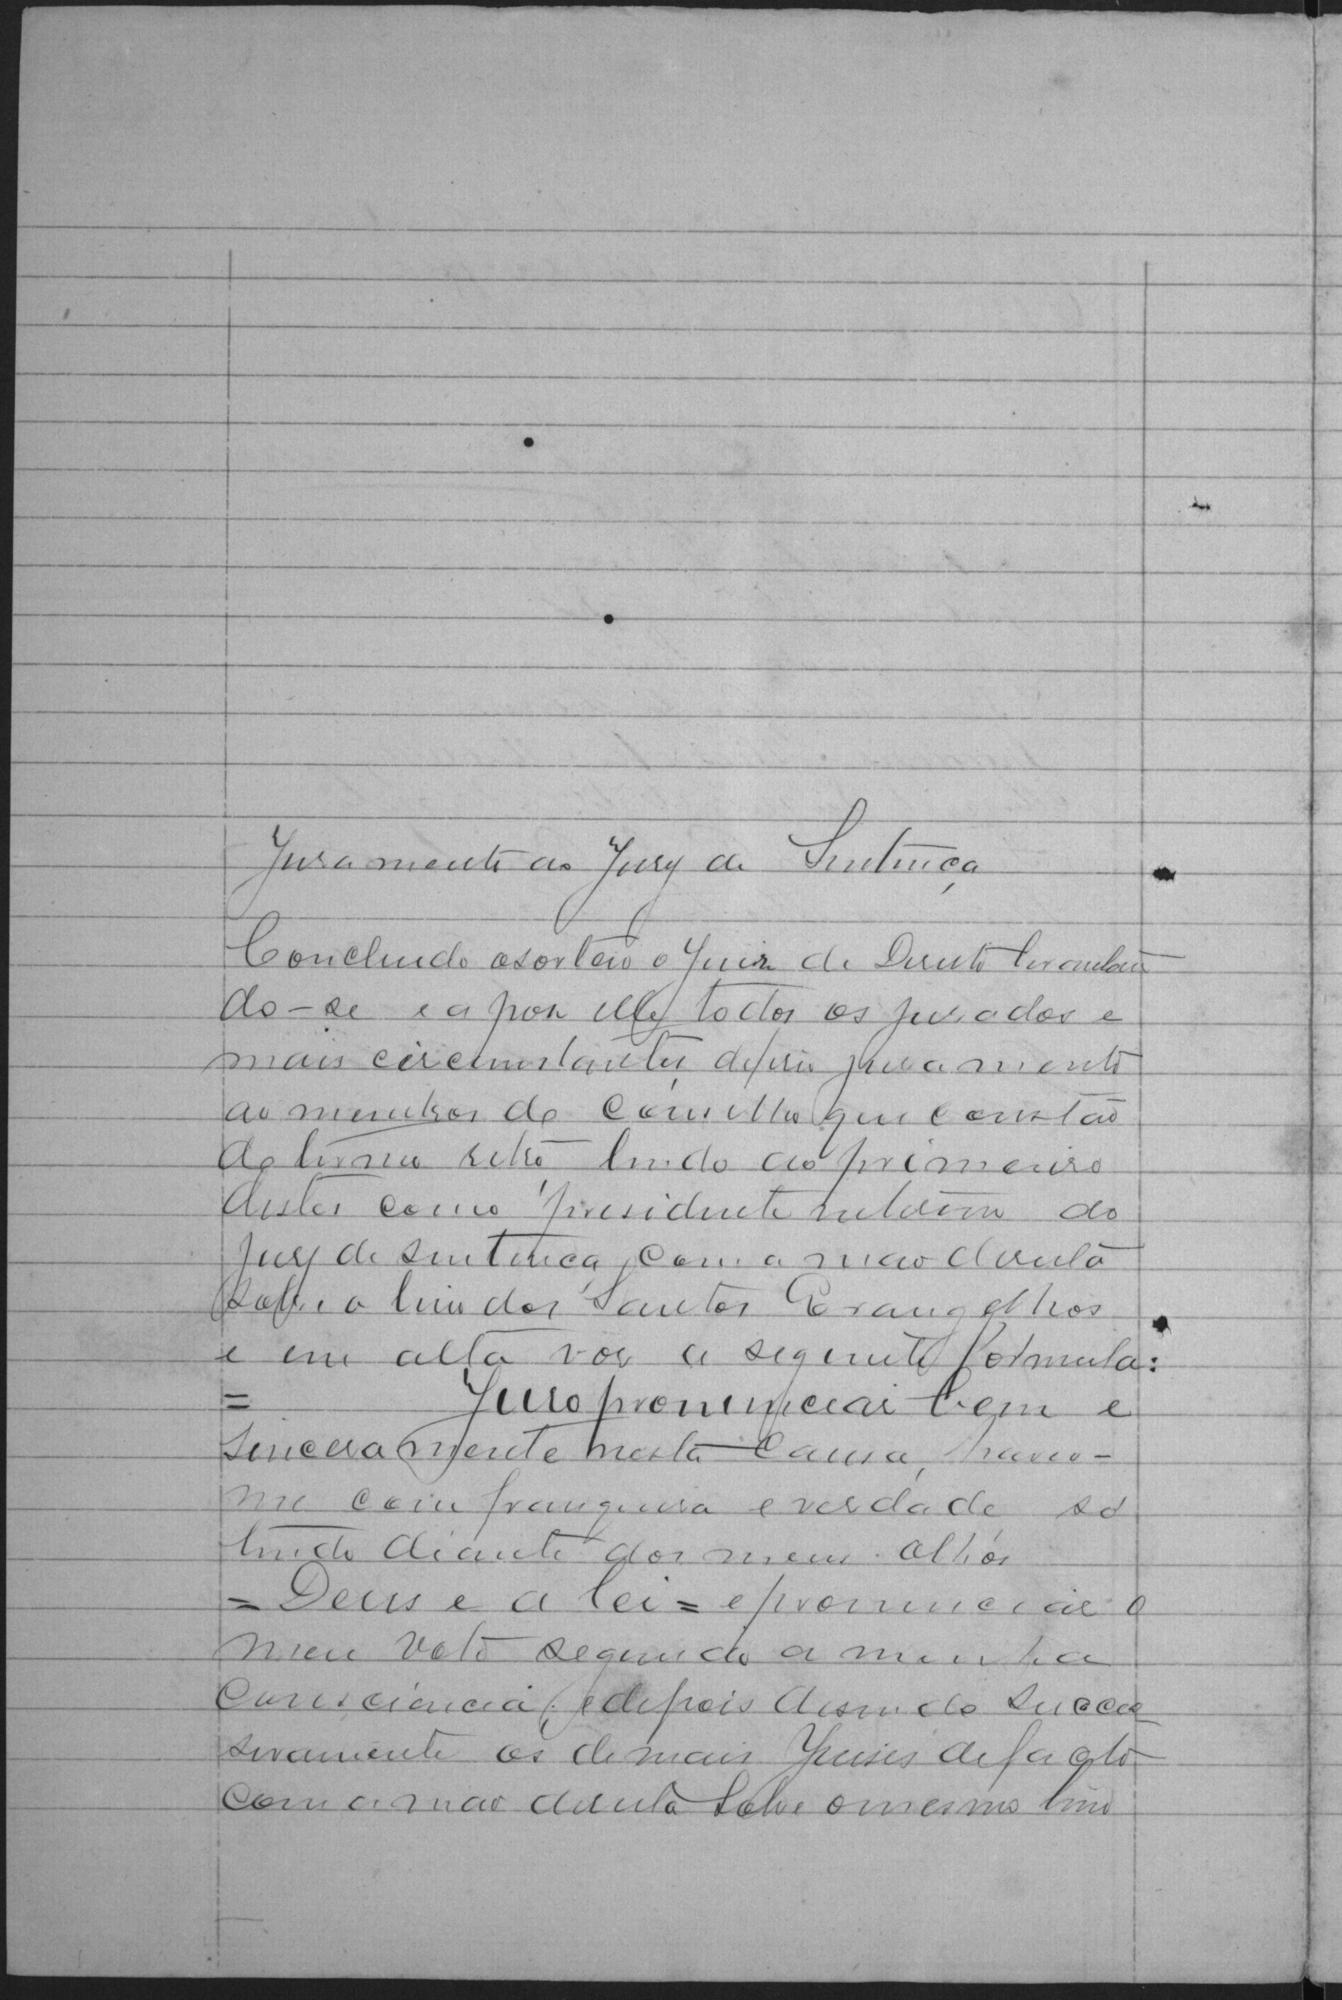 Juramento ao Jury de Sentença
Concluido o sorteio o Juiz de Direito levantan
do-se e apoz elle todos os jurados e
mais circumstantes, deferiu juramento
ao membros do Conselho que constão
do termo retro lendo ao primeiro
destes como presidente interino do
jury de sentença, com a mão direita
sobre o livro dos Santos Evangelhos
e em alta voz a seguinte formula:
= Juro pronunciar bem e
sinceramente nesta causa, haver-
me com franqueza e verdade só
tendo diante dos meus olhos
= Deus e a lei = e pronunciar o
meu voto segundo a minha
consciencia; e depois disendo succes
sivamente os demais Juises de facto
com a mão direita sobre o mesmo livro